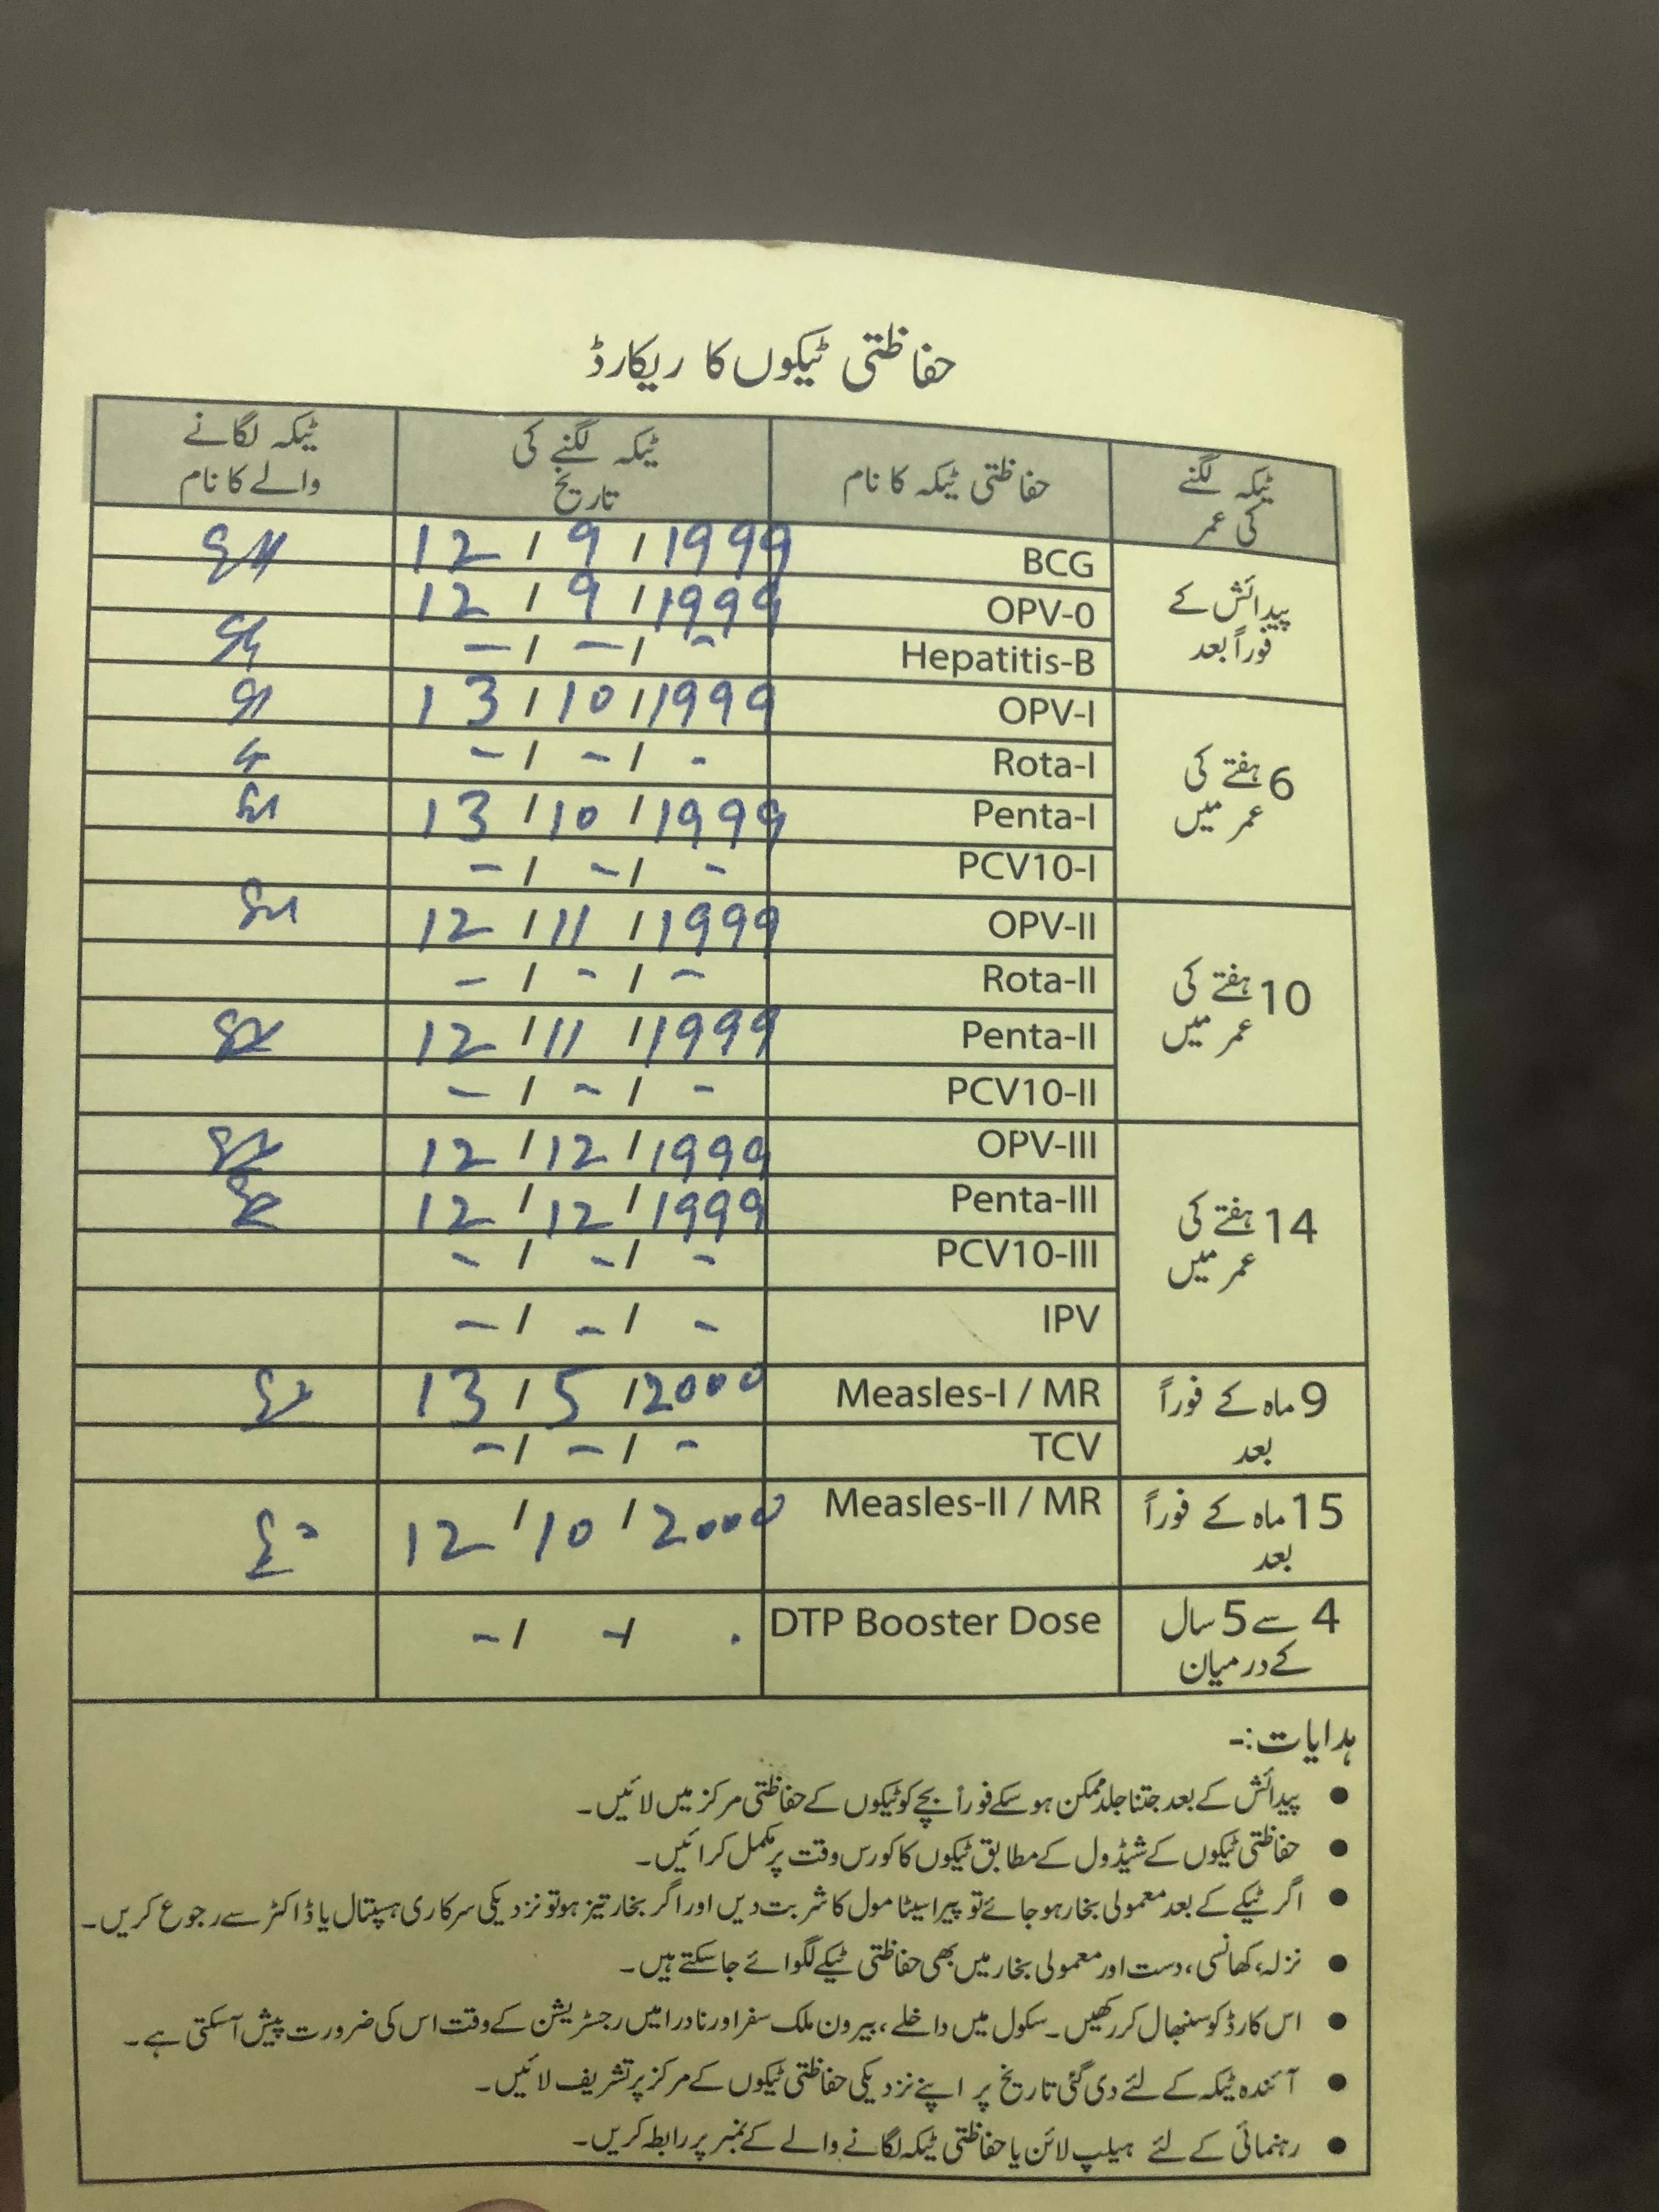 حفاظتی ٹیکوں کا ریکارڈ
ٹیکہ لگنے کی عمر
حفاظتی ٹیکہ کا نام
ٹیکہ لگنے کی تاریخ
ٹیکہ لگانے والے کا نام
پیدائش کے فوراً بعد
BCG 12 / 9 / 1999
OPV-0 12 / 9 / 1999
Hepatitis-B - / - / -
6 ہفتے کی عمر میں
OPV-I 13 / 10 / 1999
Rota-I - / - / -
Penta-I 13 / 10 / 1999
PCV10-I - / - / -
10 ہفتے کی عمر میں
OPV-II 12 / 11 / 1999
Rota-II - / - / -
Penta-II 12 / 11 / 1999
PCV10-II - / - / -
14 ہفتے کی عمر میں
OPV-III 12 / 12 / 1999
Penta-III 12 / 12 / 1999
PCV10-III - / - / -
IPV - / - / -
9 ماہ کے فوراً بعد
Measles-I / MR 13 / 5 / 2000
TCV - / - / -
15 ماہ کے فوراً بعد
Measles-II / MR 12 / 10 / 2000
4 سے 5 سال کے درمیان
DTP Booster Dose - / - / .
ہدایات:-
• پیدائش کے بعد جتنا جلد ممکن ہو سکے فوراً بچے کو ٹیکوں کے حفاظتی مرکز میں لائیں۔
• حفاظتی ٹیکوں کے شیڈول کے مطابق ٹیکوں کا کورس وقت پر مکمل کرائیں۔
• اگر ٹیکے کے بعد معمولی بخار ہو جائے تو پیراسیٹامول کا شربت دیں اور اگر بخار تیز ہو تو نزدیکی سرکاری ہسپتال یا ڈاکٹر سے رجوع کریں۔
• نزلہ، کھانسی، دست اور معمولی بخار میں بھی حفاظتی ٹیکے لگوائے جا سکتے ہیں۔
• اس کارڈ کو سنبھال کر رکھیں۔ سکول میں داخلے، بیرون ملک سفر اور نادرا میں رجسٹریشن کے وقت اس کی ضرورت پیش آسکتی ہے۔
• آئندہ ٹیکہ کے لئے دی گئی تاریخ پر اپنے نزدیکی حفاظتی ٹیکوں کے مرکز پر تشریف لائیں۔
• رہنمائی کے لئے ہیلپ لائن یا حفاظتی ٹیکہ لگانے والے کے نمبر پر رابطہ کریں۔